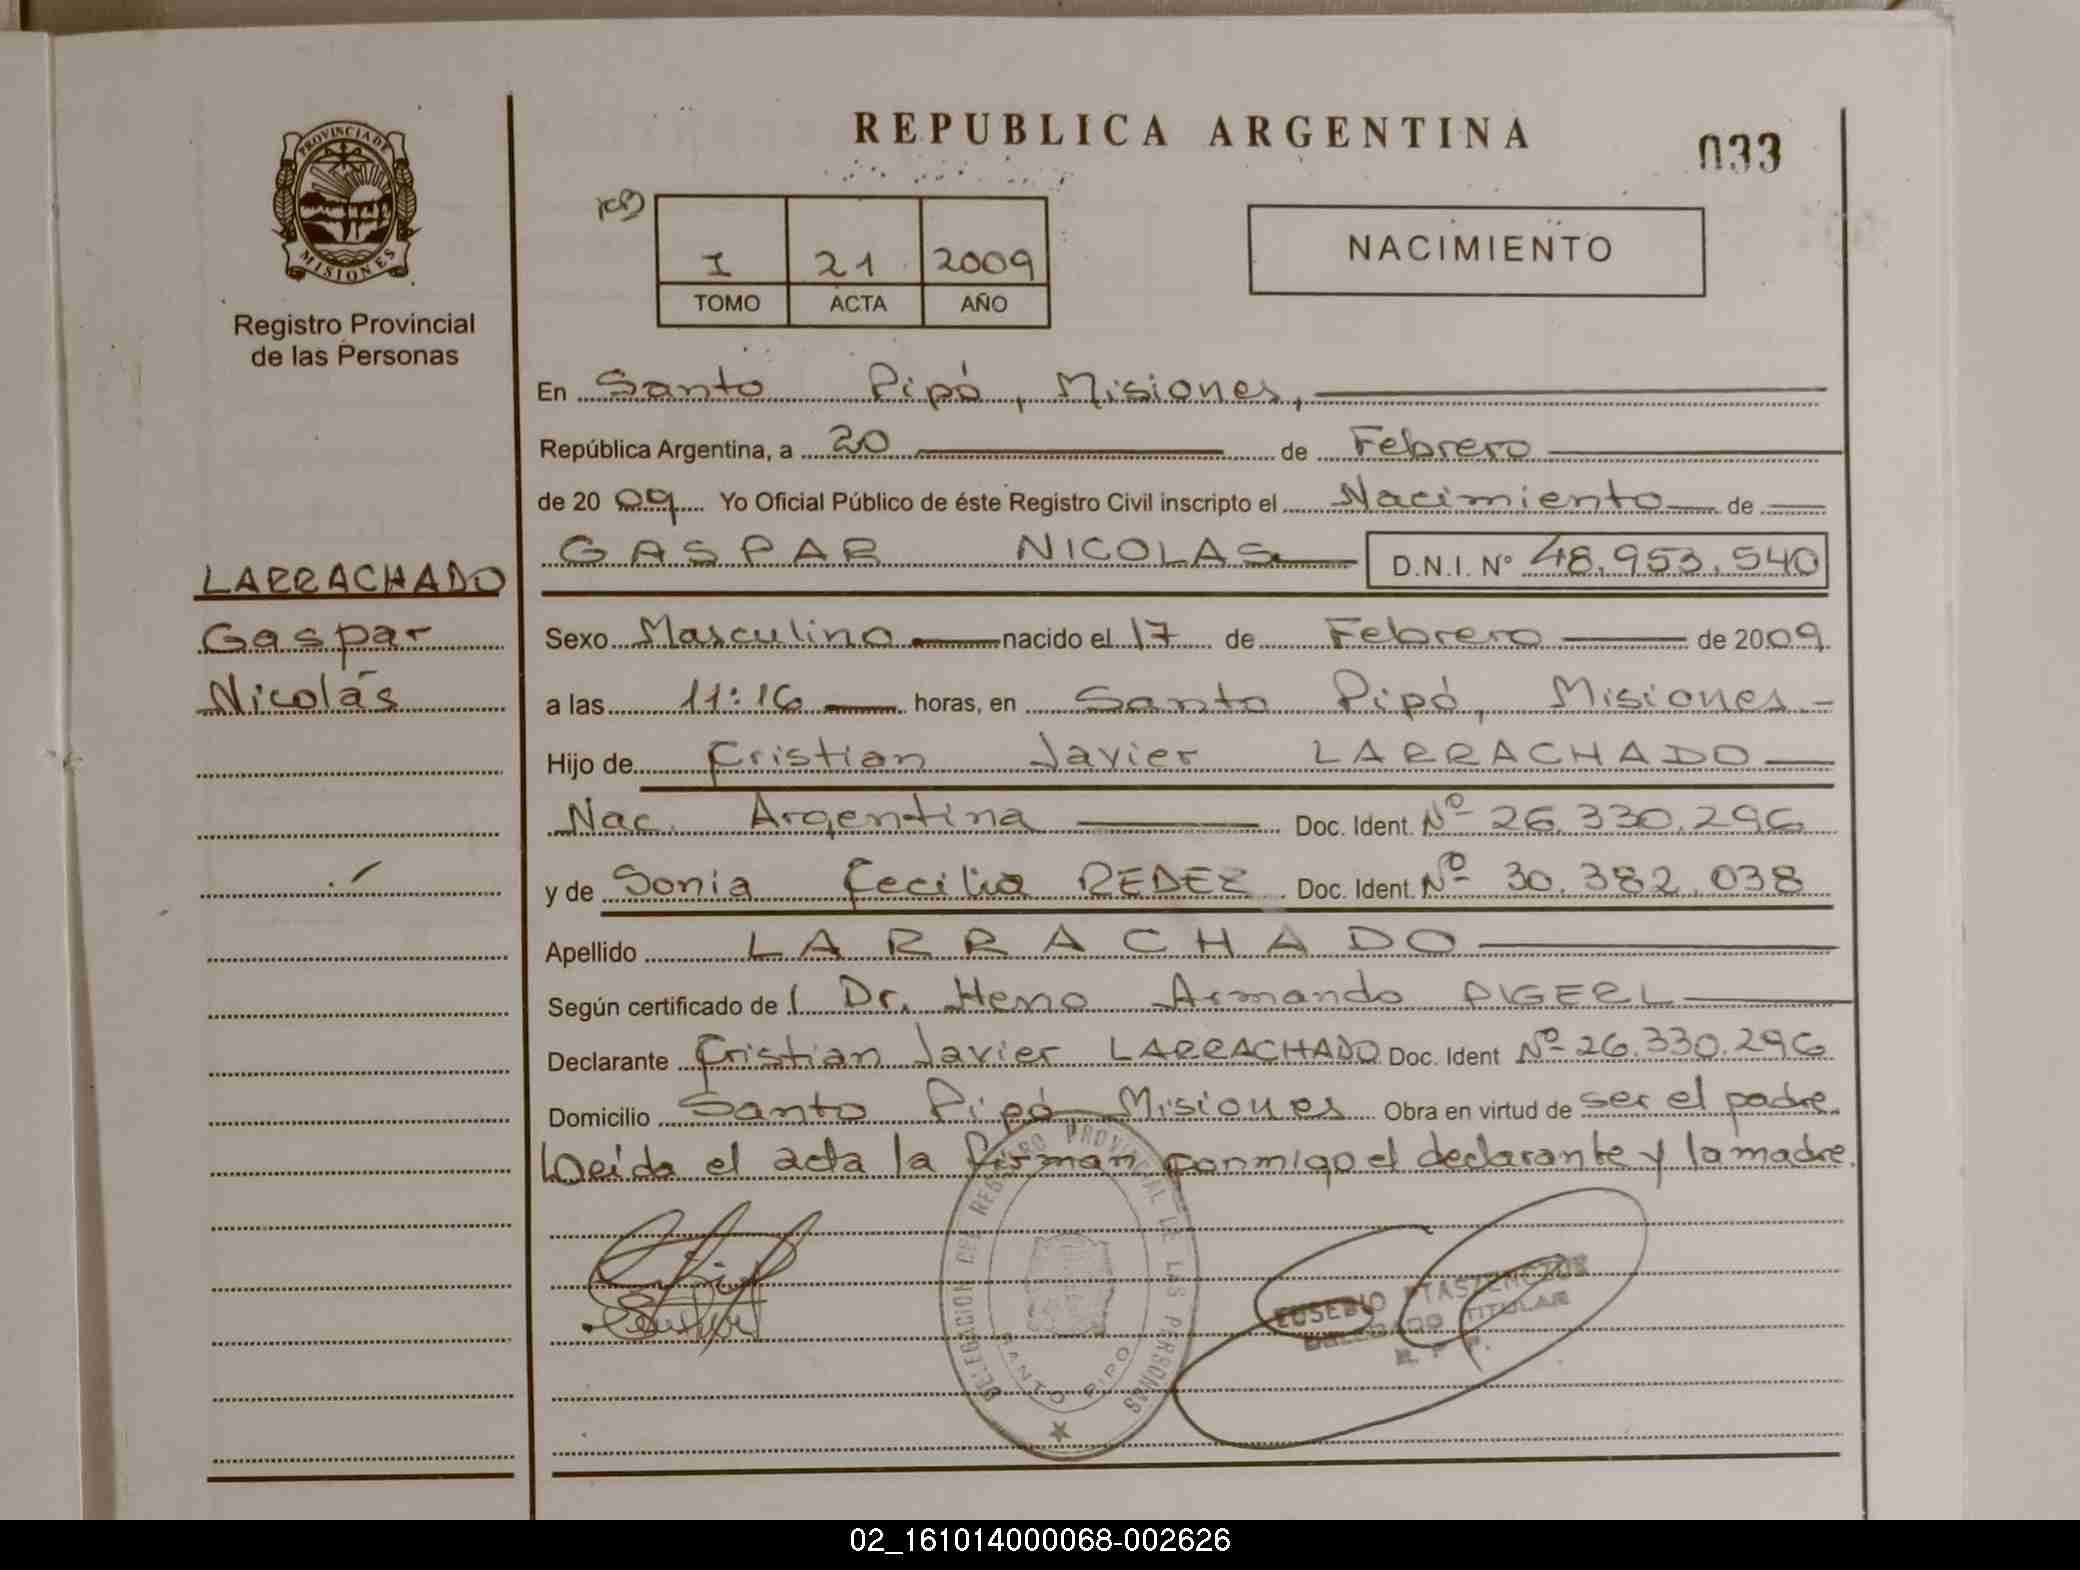 PROVINCIA DE
MISIONES
Registro Provincial
de las Personas
LARRACHADO
Gaspar
Nicolás
REPUBLICA ARGENTINA
033
I 21 2009
TOMO ACTA AÑO
NACIMIENTO
En Santo Pipó, Misiones,
República Argentina, a 20 de Febrero
de 2009 Yo Oficial Público de éste Registro Civil inscripto el Nacimiento de
GASPAR NICOLAS D.N.I. N° 48.953.540
Sexo Masculino nacido el 17 de Febrero de 2009
a las 11:16 horas, en Santo Pipó, Misiones
Hijo de Cristian Javier LARRACHADO
Nac. Argentina Doc. Ident. Nº 26.330.296
y de Sonia Cecilia REDEZ Doc. Ident. Nº 30.382.038
Apellido LARRACHADO
Según certificado de l Dr. Heno Armando PIGERL
Declarante Cristian Javier LARRACHADO Doc. Ident Nº 26.330.296
Domicilio Santo Pipó Misiones Obra en virtud de ser el padre.
Leída el acta la firman conmigo el declarante y la madre.
DELEGACION DEL REGISTRO PROVINCIAL DE LAS PERSONAS
SANTO PIPO
EUSEBIO
DELEGADO TITULAR
R. P. P.
02_161014000068-002626